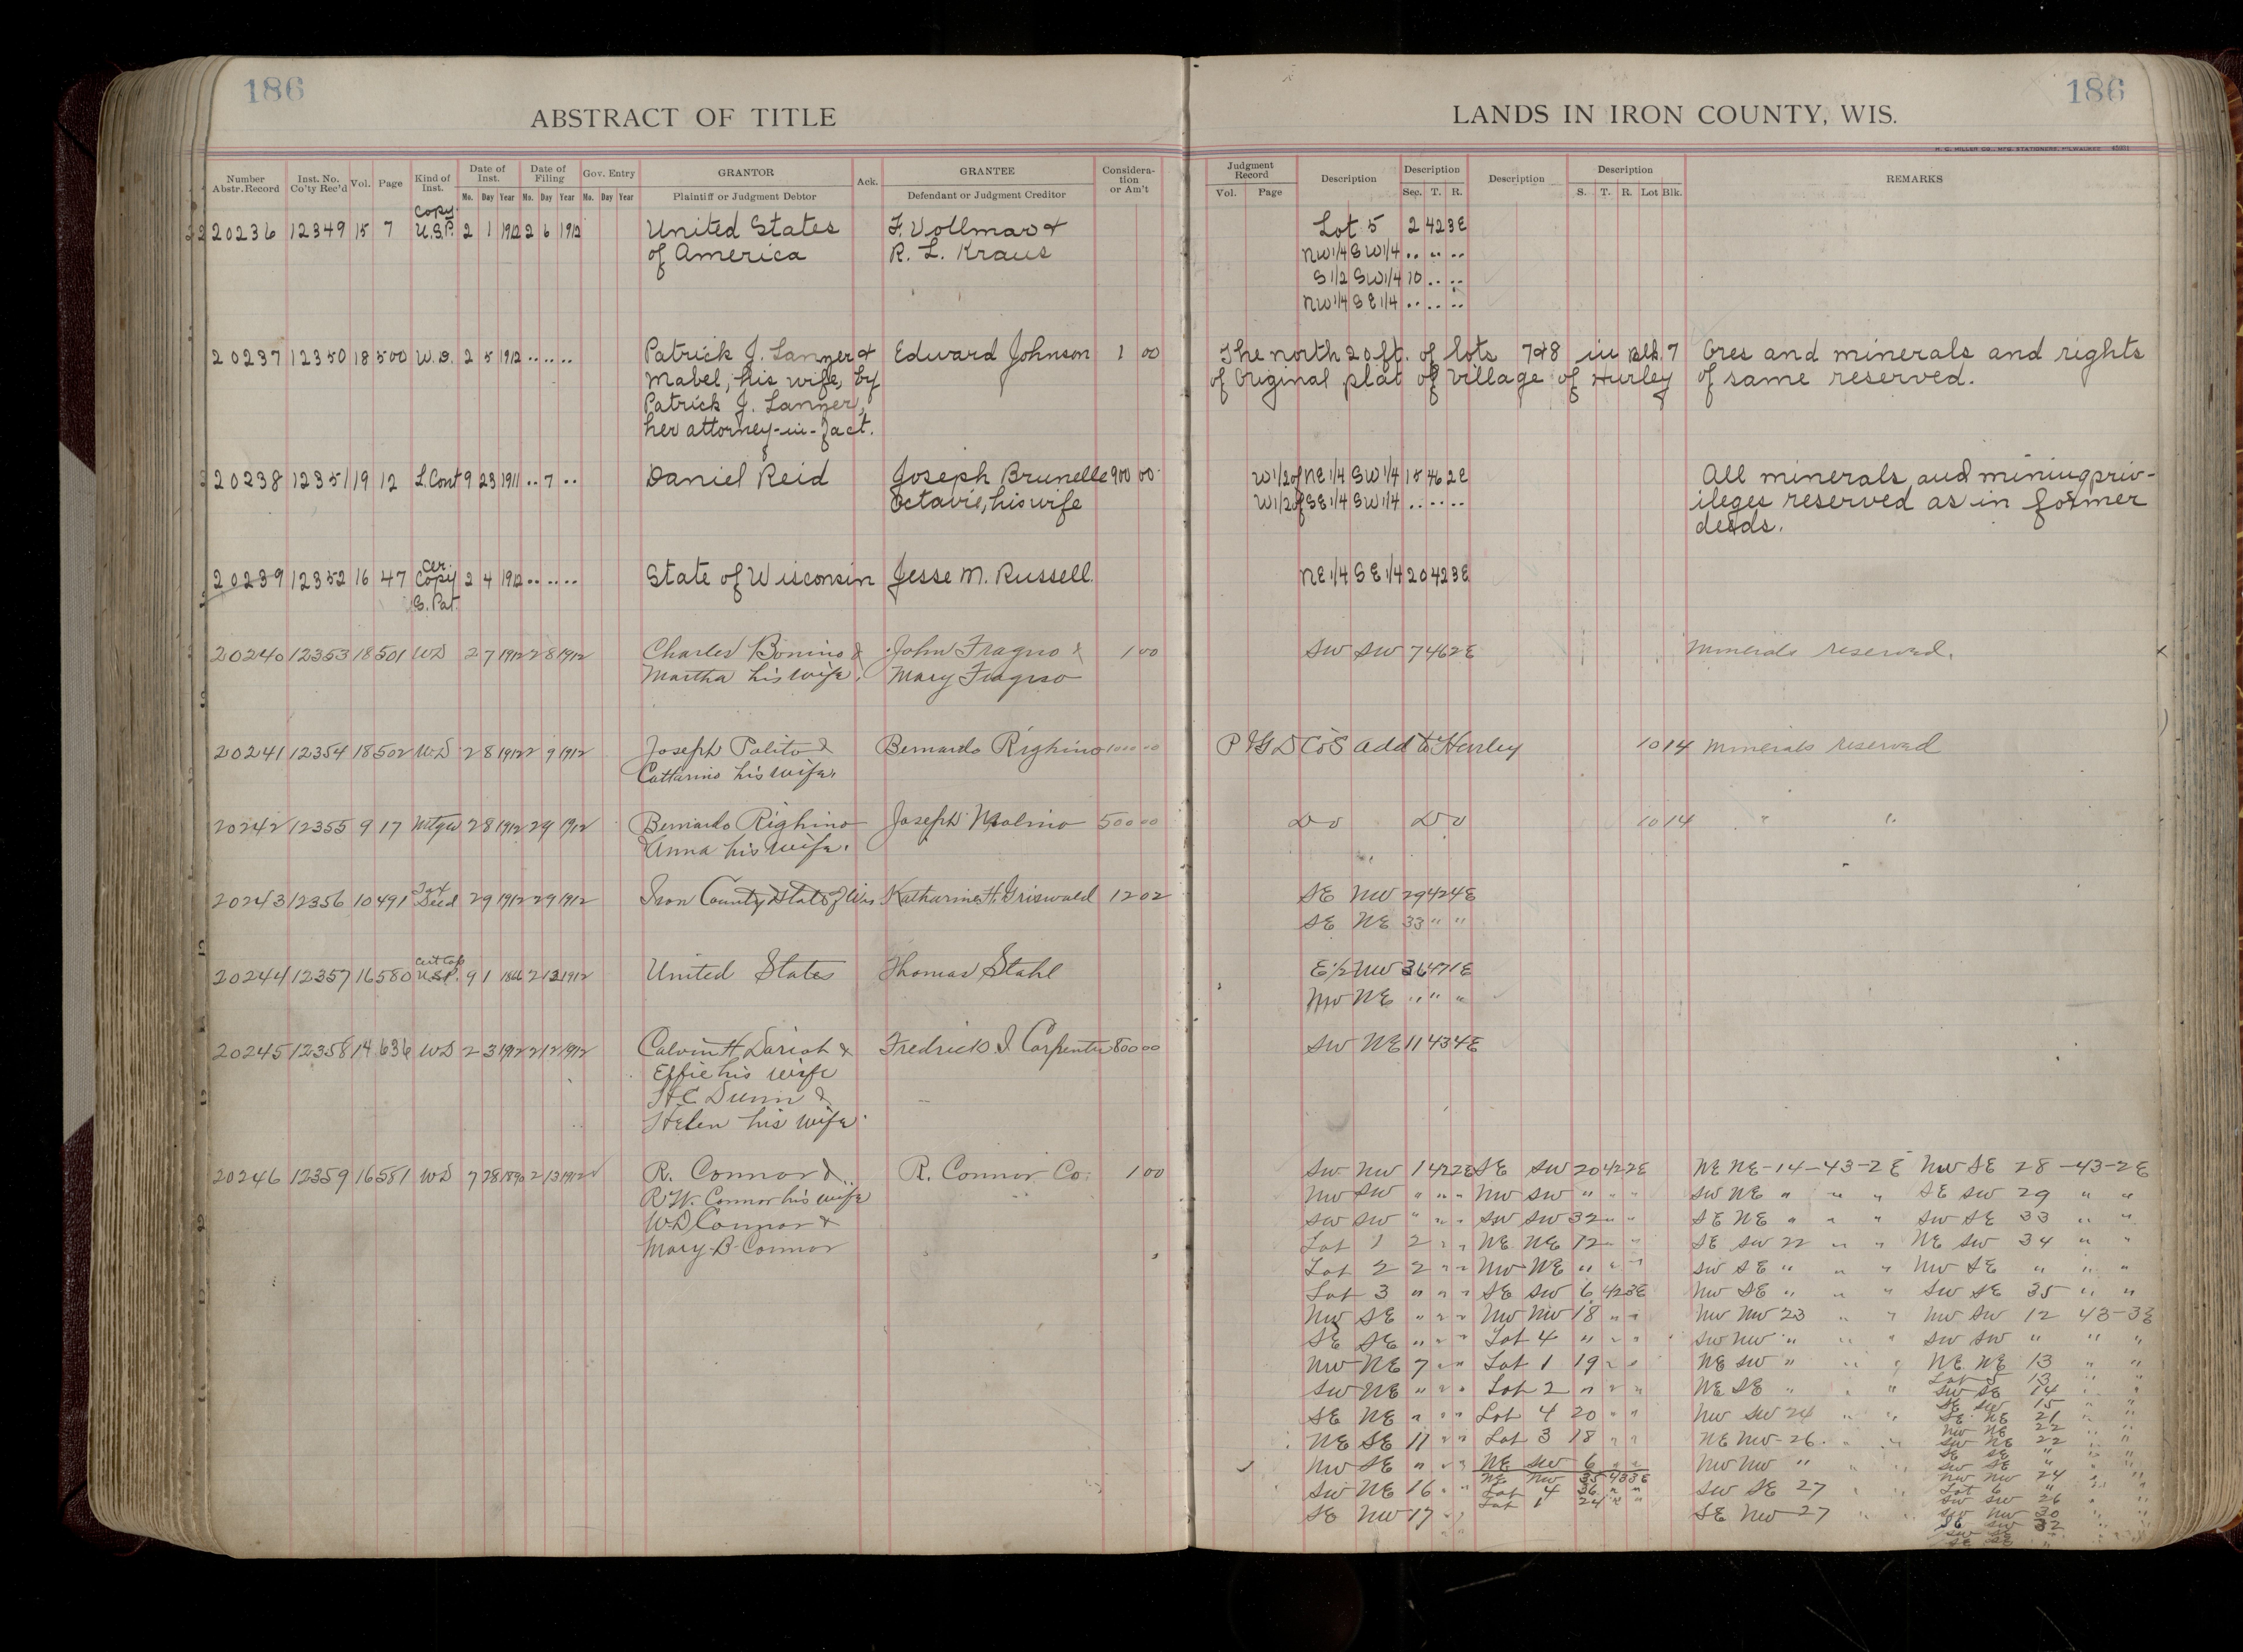 186
ABSTRACT OF TITLE
Number Abstr. Record | Inst. No. Co'ty Rec'd | Vol. | Page | Kind of Inst. | Date of Inst. Mo. Day Year | Date of Filing Mo. Day Year | Gov. Entry Mo. Day Year | GRANTOR Plaintiff or Judgment Debtor | Ack. | GRANTEE Defendant or Judgment Creditor | Considera-tion or Am't
Copy
20236 12349 15 7 U.S.P. 2 1 1912 2 6 1912 United States F. Vollmar &
of America R. L. Kraus
20237 12350 18 500 W.D. 2 5 1912 .. .. .. Patrick J. Lanzer & Edward Johnson 1 00
Mabel, his wife, by
Patrick J. Lanzer,
her attorney-in-fact.
20238 12351 19 12 L.Cont 9 23 1911 .. 7 .. Daniel Reid Joseph Brunelle 900 00
Octavie, his wife
Cer.
20239 12352 16 47 Copy 2 4 1912 .. .. .. State of Wisconsin Jesse M. Russell
S. Pat.
20240 12353 18 501 WD 2 7 1912 2 8 1912 Charles Bonino & John Fragno & 1 00
Martha his wife. Mary Fragno
20241 12354 18 502 W.D 2 8 1912 2 9 1912 Joseph Polito & Bernardo Righino 1000 00
Cattarino his wife.
20242 12355 9 17 Mtge 2 8 1912 2 9 1912 Bernardo Righino Joseph Molino 500 00
& Anna his wife.
Tax
20243 12356 10 491 Deed 2 9 1912 2 9 1912 Iron County State of Wis Katharine H. Griswold 12 02
Cert Cop
20244 12357 16 580 U.S.P. 9 1 1866 2 13 1912 United States Thomas Stahl
20245 12358 14 636 WD 2 3 1912 2 12 1912 Calvin H Dariot & Fredrick I Carpenter 800 00
Effie his wife
H C Dunn &
Helen his wife.
20246 12359 16 581 WD 7 28 1890 2 13 1912 R. Connor & R. Connor Co. 1 00
R W. Connor his wife
W D Connor &
Mary B. Connor
186
LANDS IN IRON COUNTY, WIS.
H. C. MILLER CO., MFG. STATIONERS, MILWAUKEE
Judgment Record Vol. Page | Description | Description Sec. T. R. | Description | Description S. T. R. Lot Blk. | REMARKS
Lot 5 2 42 3E
NW1/4 SW1/4 .. .. ..
S1/2 SW1/4 10 .. ..
NW1/4 SE1/4 .. .. ..
The north 20 ft. of lots 7&8 in blk. 7 Ores and minerals and rights
of Original plat of Village of Hurley of same reserved.
W1/2 of NE1/4 SW1/4 15 46 2E All minerals and mining priv-
W1/2 of SE1/4 SW1/4 .. .. .. ileges reserved as in former
deeds.
NE1/4 SE1/4 20 42 3E
SW SW 7 46 2E Minerals reserved.
P & G D Co's Add to Hurley 10 14 Minerals reserved
Do Do 10 14 " "
SE NW 29 42 4E
SE NE 33 " "
E1/2 NW 36 47 1E
NW NE " " "
SW NE 11 43 4E
SW NW 1 42 2E SE SW 20 42 2E NE NE-14-43-2E NW SE 28-43-2E
NW SW " " " NW SW " " " SW NE " " " SE SW 29 " "
SW SW " " " SW SW 32 " " SE NE " " " SW SE 33 " "
Lot 1 2 " " NE NE 12 " " SE SW 22 " " NE SW 34 " "
Lot 2 2 " " NW NE " " " SW SE " " " NW SE " " "
Lot 3 " " " SE SW 6 42 3E NW SE " " " SW SE 35 " "
NW SE " " " NW NW 18 " " NW NW 23 " " NW SW 12 43-3E
SE SE " " " Lot 4 " " " SW NW " " " SW SW " " "
NW NE 7 " " Lot 1 19 " " NE SW " " " NE NE 13 " "
Lot 5 13 " "
SW NE " " " Lot 2 " " " NE SE " " " SW SE 14 " "
SE SW 15 " "
SE NE " " " Lot 4 20 " " NW SW 24 " " SE NE 21 " "
NW NE 22 " "
NE SE 11 " " Lot 3 18 " " NE NW-26 " " SW NE 22 " "
SE SE " " "
NW SE " " " NE SW 6 " " NW NW " " " SW SE " " "
NE NW 35 43 3E NW NW 24 " "
SW NE 16 " " Lot 4 36 " " SW SE 27 " " Lot 6 " " "
Lot 1 24 " " SW SW 26 " "
SE NW 17 " " SE NW 27 " " SW NW 30 " "
SE SW 32 " "
SW SE
SE SE "